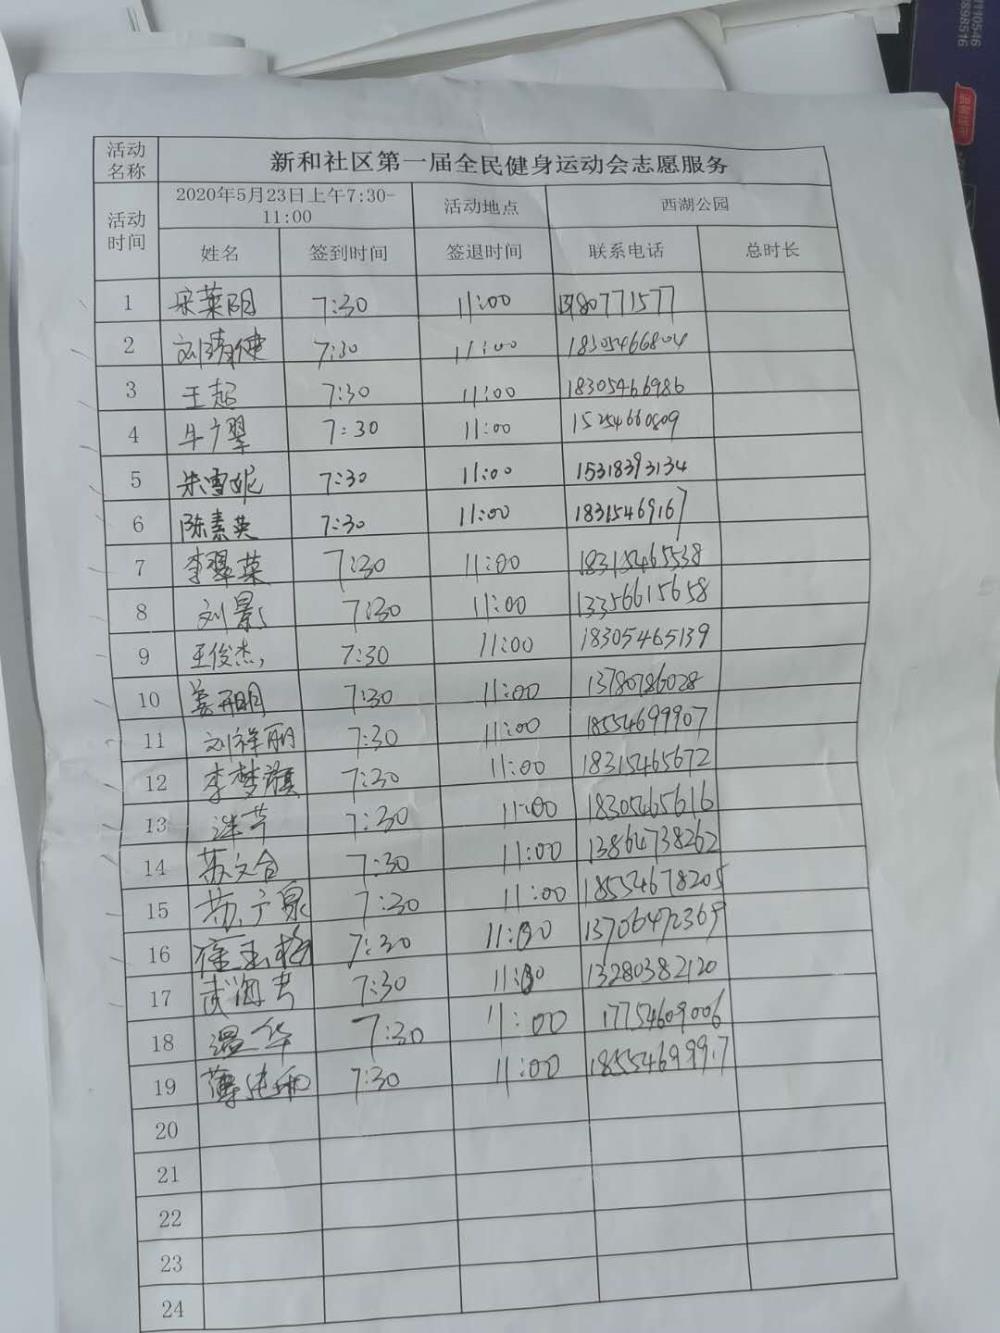 活动名称 新和社区第一届全民健身运动会志愿服务
活动时间 2020年5月23日上午7:30-11:00 活动地点 西湖公园
姓名 签到时间 签退时间 联系电话 总时长
1 宋莱阳 7:30 11:00 13780771577
2 刘清健 7:30 11:00 18305466804
3 王超 7:30 11:00 18305466986
4 牛广翠 7:30 11:00 15254660809
5 朱雪妮 7:30 11:00 15318393134
6 陈素英 7:30 11:00 18315469167
7 李翠荣 7:30 11:00 18315465538
8 刘影 7:30 11:00 13356615658
9 王俊杰 7:30 11:00 18305465139
10 姜丽明 7:30 11:00 13780786028
11 刘祥丽 7:30 11:00 18554699907
12 李梦旗 7:30 11:00 18315465672
13 7:30 11:00 18305465616
14 苏文合 7:30 11:00 13864738262
15 苏广泉 7:30 11:00 18554678205
16 7:30 11:00 13706472369
17 武海 7:30 11:00 13280382120
18 温华 7:30 11:00 17754609006
19 7:30 11:00
20
21
22
23
24